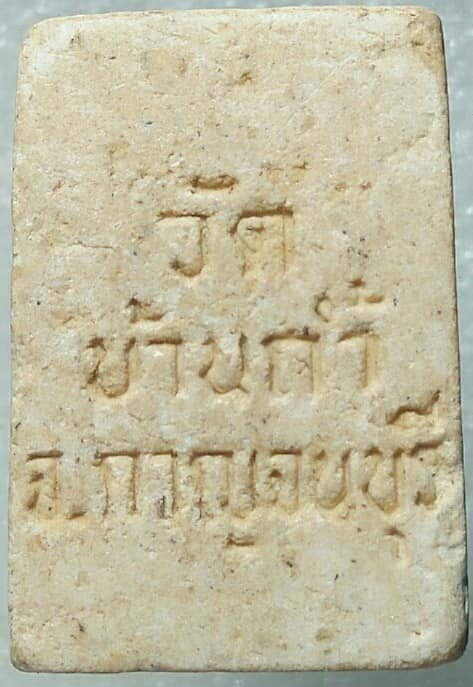 วัด
บ้านถ้ำ
จ.กาญจนบุรี